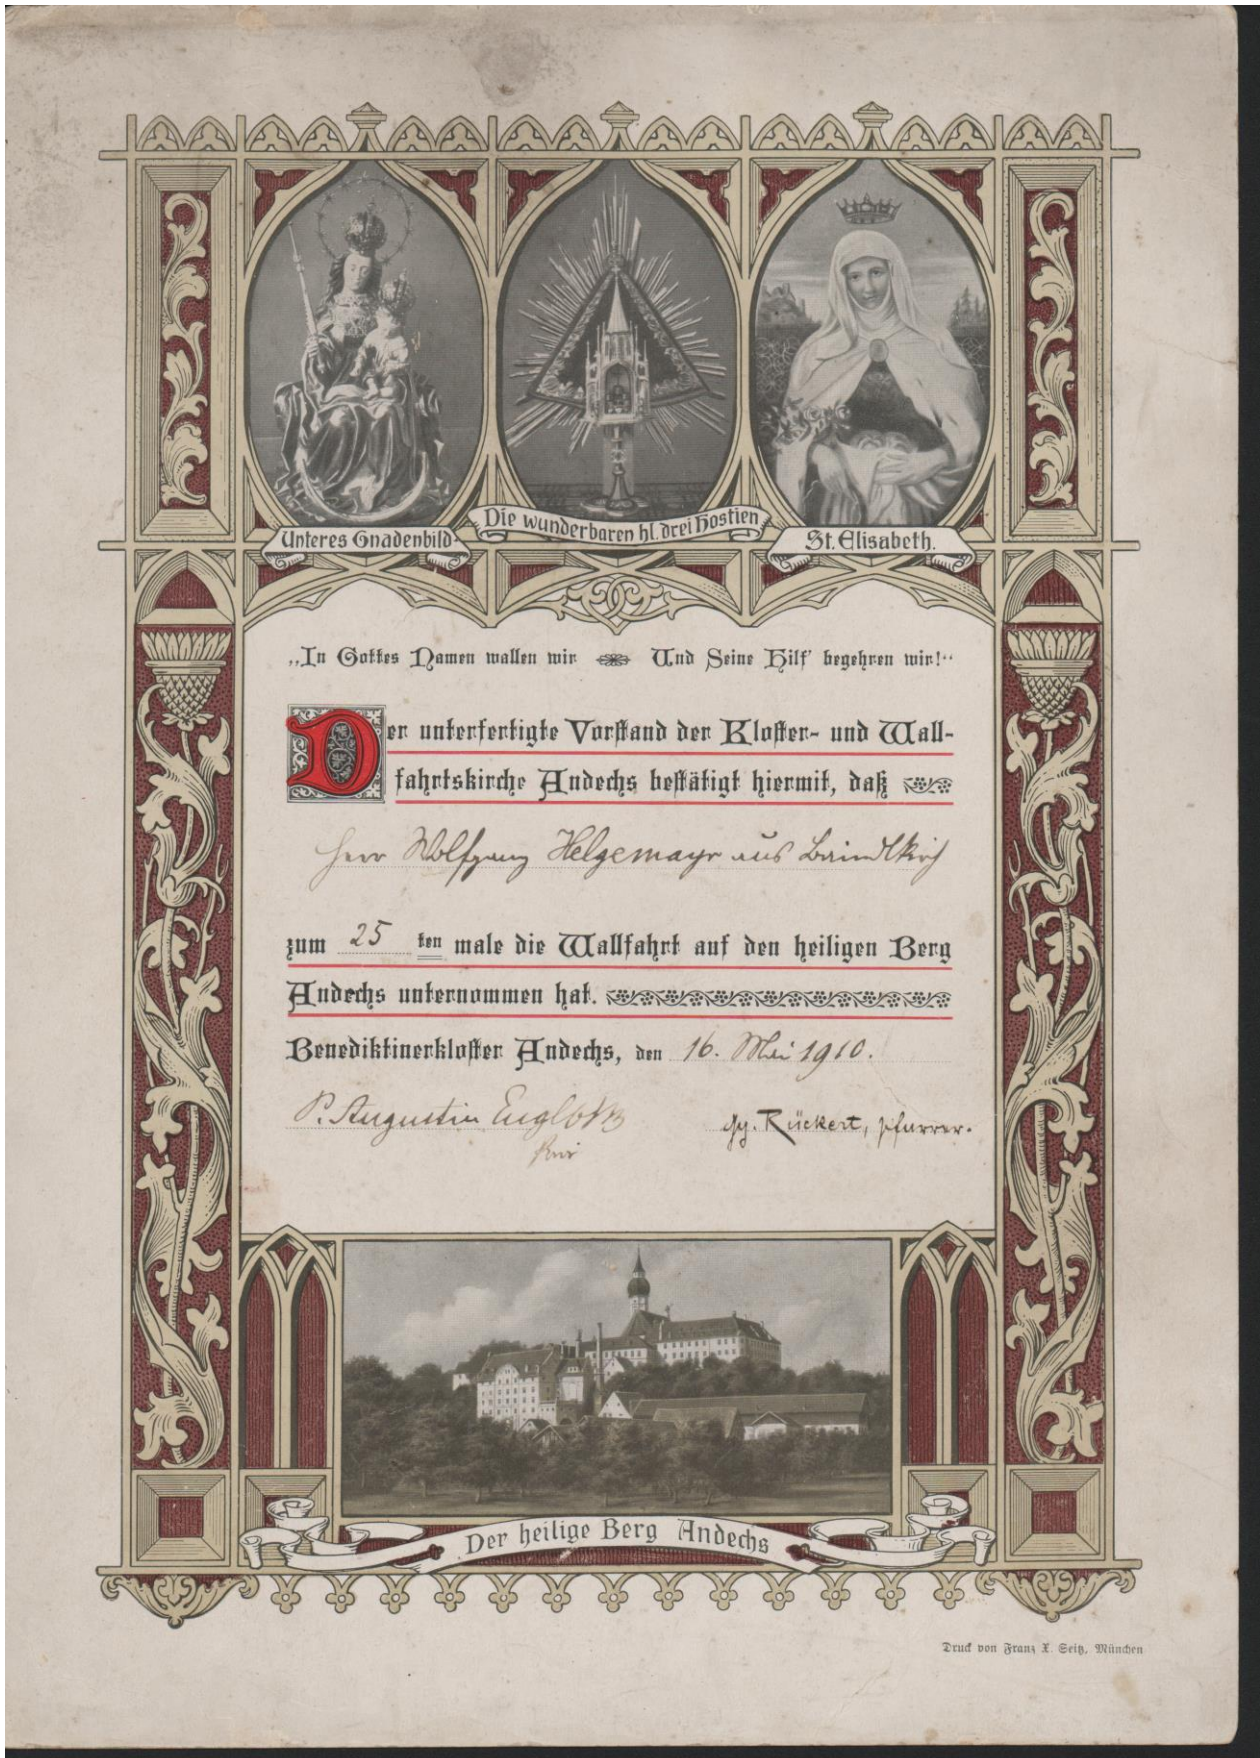 Unteres Gnadenbild.
Die wunderbaren hl. drei Hostien
St. Elisabeth.
„In Gottes Namen wallen wir Und Seine Hilf' begehren wir!“
Der unterfertigte Vorstand der Kloster- und Wall-
fahrtskirche Andechs bestätigt hiermit, daß
Herr Wolfgang Helgemayr aus Baindlkirch
zum 25 ten male die Wallfahrt auf den heiligen Berg
Andechs unternommen hat.
Benediktinerkloster Andechs, den 16. Mai 1910.
P. Augustin Engl OSB
Gg. Rückert, Pfarrer.
Der heilige Berg Andechs
Druck von Franz X. Seitz, München